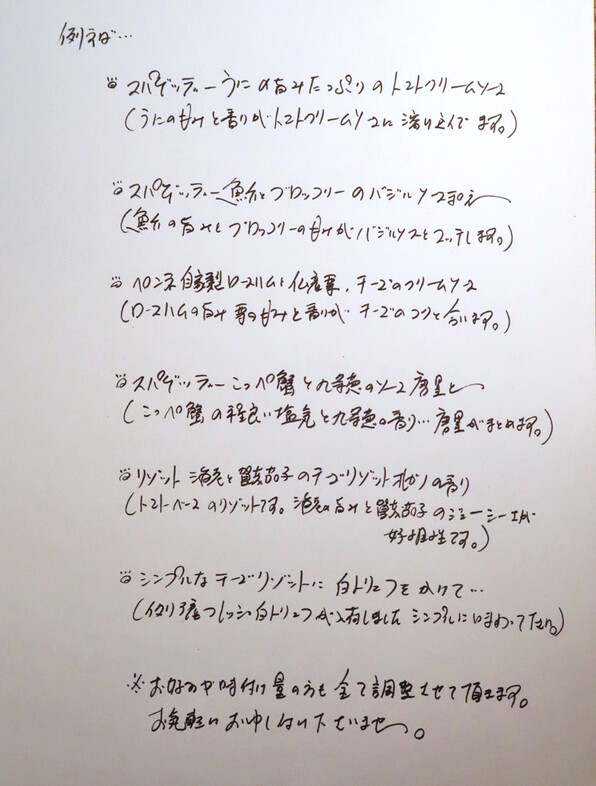 例えば…
スパゲッティー うにの旨みたっぷりのトマトクリームソース
(うにの甘みと香りがトマトクリームソースに溶け込んでます。)
スパゲッティー 魚介とブロッコリーのバジルソース和え
(魚介の旨みとブロッコリーの甘みがバジルソースとマッチします。)
ペンネ 自家製ロースハムと仏産栗、チーズのクリームソース
(ロースハムの旨み 栗の甘みと香りが チーズのコクと合います。)
スパゲッティー こっぺ蟹と九条葱のソース 唐墨と
(こっぺ蟹の程良い塩気と九条葱の香り… 唐墨がまとめます。)
リゾット 海老と賀茂茄子のチーズリゾット オレガノの香り
(トマトベースのリゾットです。海老の旨みと賀茂茄子のジューシーさが
好相性です。)
シンプルなチーズリゾットに 白トリュフをかけて…
(イタリア産フレッシュ白トリュフが入荷しました シンプルに味わって下さい。)
※お好みや味付け 量の方も全て調整させて頂きます。
お気軽にお申し付け下さいませ。